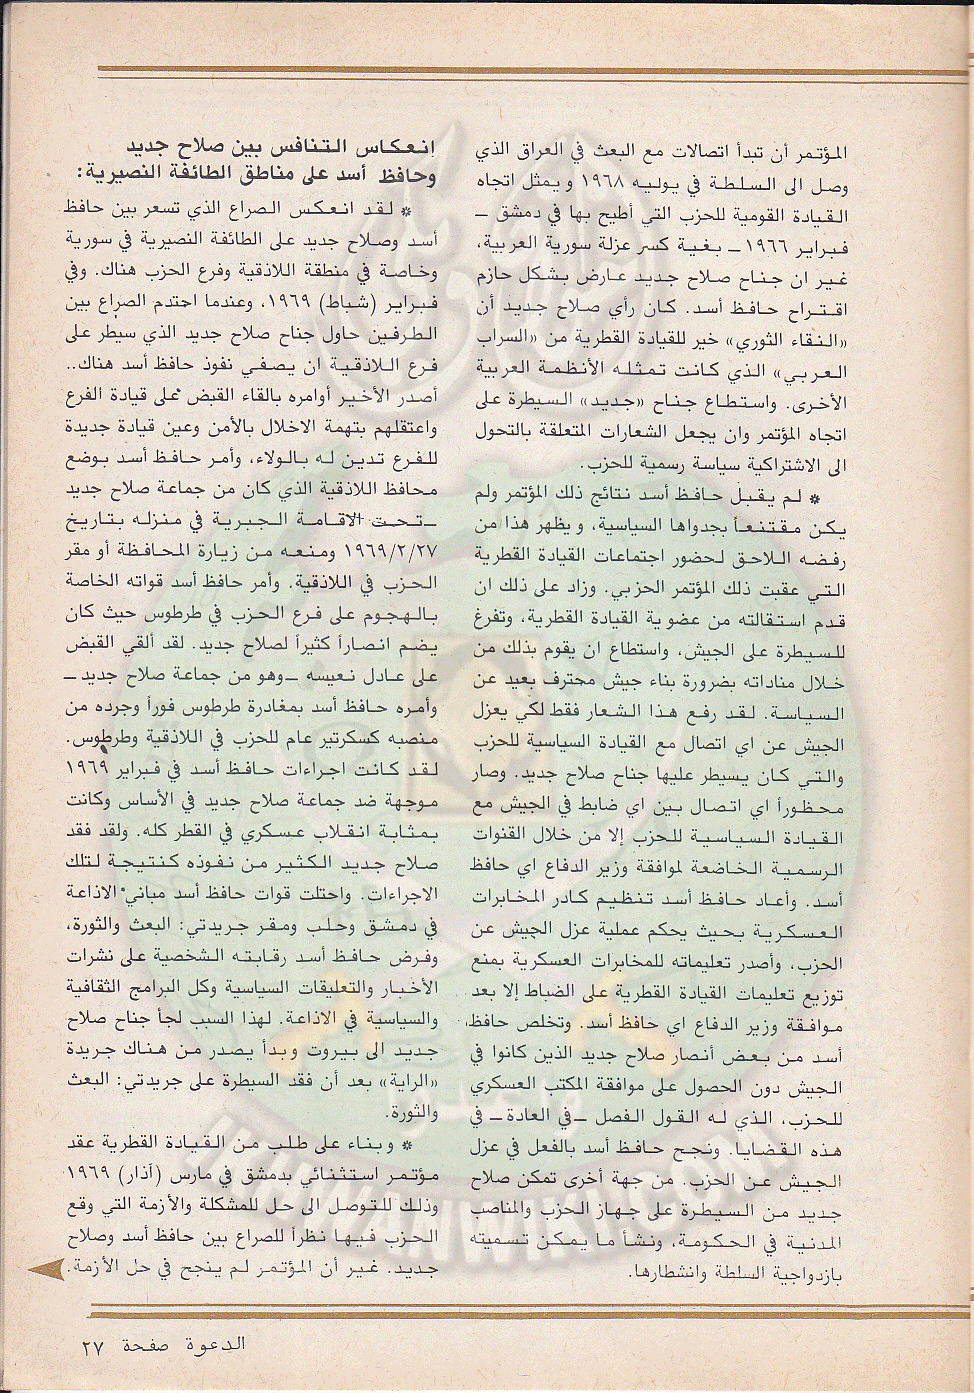 المؤتمر أن تبدأ اتصالات مع البعث في العراق الذي
وصل الى السلطة في يوليه ١٩٦٨ ويمثل اتجاه
القيادة القومية للحزب التي أطيح بها في دمشق ــ
فبراير ١٩٦٦ ــ بغية كسر عزلة سورية العربية،
غير ان جناح صلاح جديد عارض بشكل حازم
اقتراح حافظ أسد. كان رأي صلاح جديد أن
«النقاء الثوري» خير للقيادة القطرية من «السراب
العربي» الذي كانت تمثله الأنظمة العربية
الأخرى. واستطاع جناح «جديد» السيطرة على
اتجاه المؤتمر وان يجعل الشعارات المتعلقة بالتحول
الى الاشتراكية سياسة رسمية للحزب.
* لم يقبل حافظ أسد نتائج ذلك المؤتمر ولم
يكن مقتنعاً بجدواها السياسية، ويظهر هذا من
رفضه اللاحق لحضور اجتماعات القيادة القطرية
التي عقبت ذلك المؤتمر الحزبي. وزاد على ذلك ان
قدم استقالته من عضوية القيادة القطرية، وتفرغ
للسيطرة على الجيش، واستطاع ان يقوم بذلك من
خلال مناداته بضرورة بناء جيش محترف بعيد عن
السياسة. لقد رفع هذا الشعار فقط لكي يعزل
الجيش عن اي اتصال مع القيادة السياسية للحزب
والتي كان يسيطر عليها جناح صلاح جديد. وصار
محظوراً اي اتصال بين اي ضابط في الجيش مع
القيادة السياسية للحزب إلا من خلال القنوات
الرسمية الخاضعة لموافقة وزير الدفاع اي حافظ
أسد. وأعاد حافظ أسد تنظيم كادر المخابرات
العسكرية بحيث يحكم عملية عزل الجيش عن
الحزب، وأصدر تعليماته للمخابرات العسكرية بمنع
توزيع تعليمات القيادة القطرية على الضباط إلا بعد
موافقة وزير الدفاع اي حافظ أسد. وتخلص حافظ
أسد من بعض أنصار صلاح جديد الذين كانوا في
الجيش دون الحصول على موافقة المكتب العسكري
للحزب، الذي له القول الفصل ــ في العادة ــ في
هذه القضايا. ونجح حافظ أسد بالفعل في عزل
الجيش عن الحزب. من جهة أخرى تمكن صلاح
جديد من السيطرة على جهاز الحزب والمناصب
المدنية في الحكومة، ونشأ ما يمكن تسميته
بازدواجية السلطة وانشطارها.
انعكاس التنافس بين صلاح جديد
وحافظ أسد على مناطق الطائفة النصيرية:
* لقد انعكس الصراع الذي تسعر بين حافظ
أسد وصلاح جديد على الطائفة النصيرية في سورية
وخاصة في منطقة اللاذقية وفرع الحزب هناك. وفي
فبراير (شباط) ١٩٦٩، وعندما احتدم الصراع بين
الطرفين حاول جناح صلاح جديد الذي سيطر على
فرع اللاذقية ان يصفي نفوذ حافظ أسد هناك..
أصدر الأخير أوامره بالقاء القبض على قيادة الفرع
واعتقلهم بتهمة الاخلال بالأمن وعين قيادة جديدة
للفرع تدين له بالولاء، وأمر حافظ أسد بوضع
محافظ اللاذقية الذي كان من جماعة صلاح جديد
ــ تحت الاقامة الجبرية في منزله بتاريخ
١٩٦٩/٢/٢٧ ومنعه من زيارة المحافظة أو مقر
الحزب في اللاذقية. وأمر حافظ أسد قواته الخاصة
بالهجوم على فرع الحزب في طرطوس حيث كان
يضم انصاراً كثيراً لصلاح جديد. لقد ألقي القبض
على عادل نعيسه ــ وهو من جماعة صلاح جديد ــ
وأمره حافظ أسد بمغادرة طرطوس فوراً وجرده من
منصبه كسكرتير عام للحزب في اللاذقية وطرطوس.
لقد كانت اجراءات حافظ أسد في فبراير ١٩٦٩
موجهة ضد جماعة صلاح جديد في الأساس وكانت
بمثابة انقلاب عسكري في القطر كله. ولقد فقد
صلاح جديد الكثير من نفوذه كنتيجة لتلك
الاجراءات. واحتلت قوات حافظ أسد مباني الاذاعة
في دمشق وحلب ومقر جريدتي: البعث والثورة،
وفرض حافظ أسد رقابته الشخصية على نشرات
الأخبار والتعليقات السياسية وكل البرامج الثقافية
والسياسية في الاذاعة. لهذا السبب لجأ جناح صلاح
جديد الى بيروت وبدأ يصدر من هناك جريدة
«الراية» بعد أن فقد السيطرة على جريدتي: البعث
والثورة.
* وبناء على طلب من القيادة القطرية عقد
مؤتمر استثنائي بدمشق في مارس (آذار) ١٩٦٩
وذلك للتوصل الى حل للمشكلة والأزمة التي وقع
الحزب فيها نظراً للصراع بين حافظ أسد وصلاح
جديد. غير أن المؤتمر لم ينجح في حل الأزمة.
الدعوة صفحة ٢٧